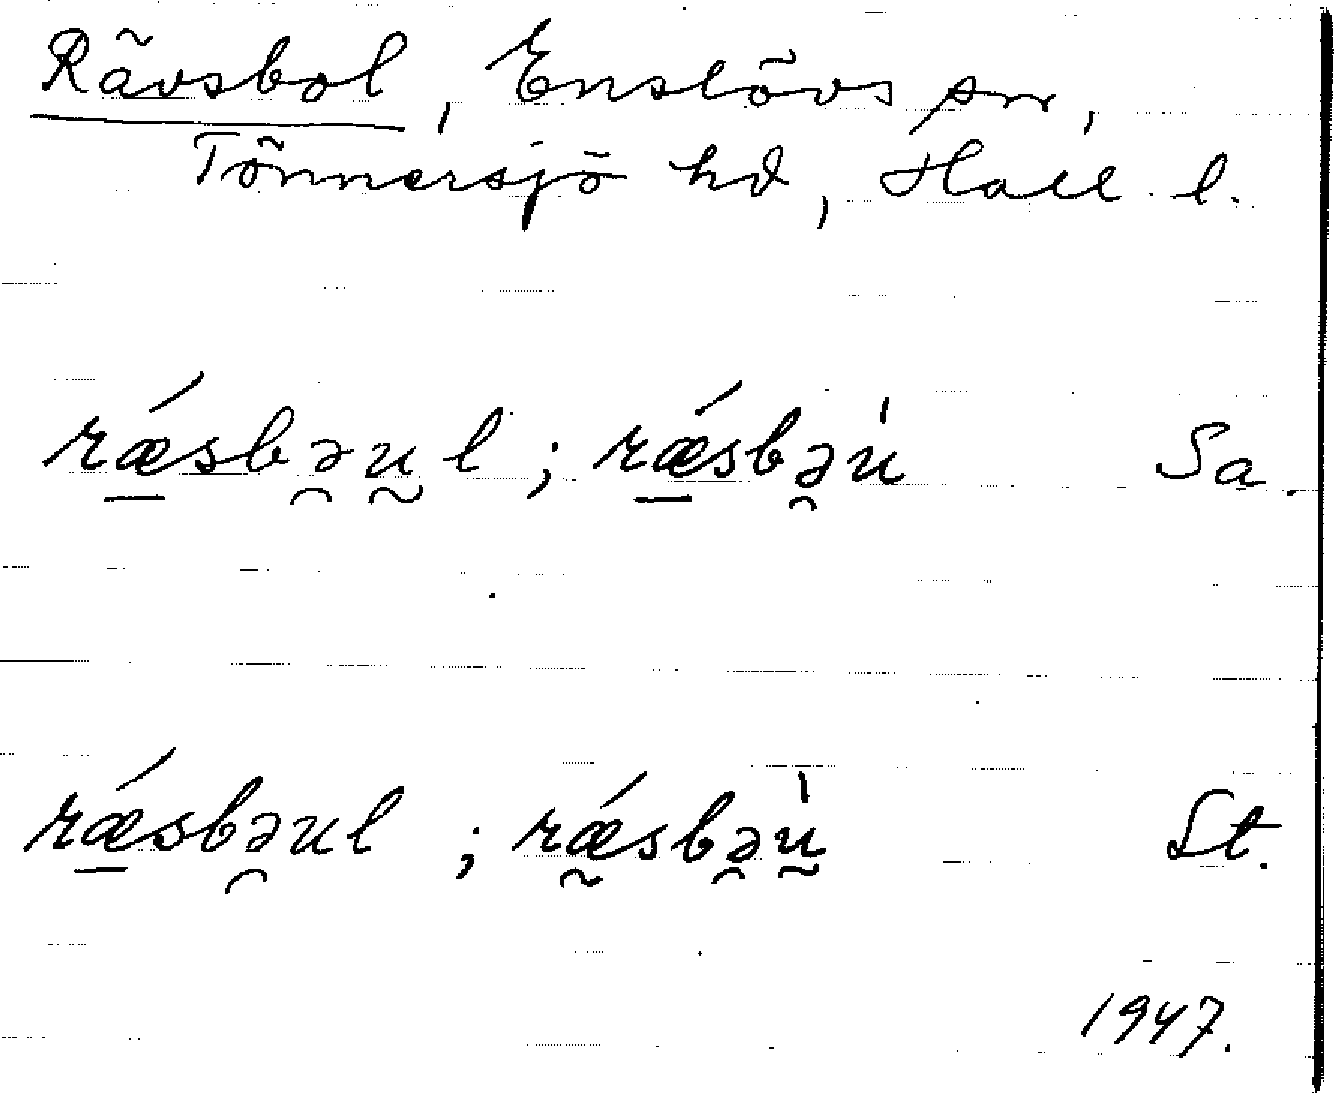 Rävsbol, Enslövs sn,
Tönnersjö hd, Hall. l.
rǽ̠sbə̯ṵl ; rǽ̠sbə̯u̍ Sa.
rǽ̠sbə̯ul ; rǽ̰sbə̯ṵ̍ St.
1947.